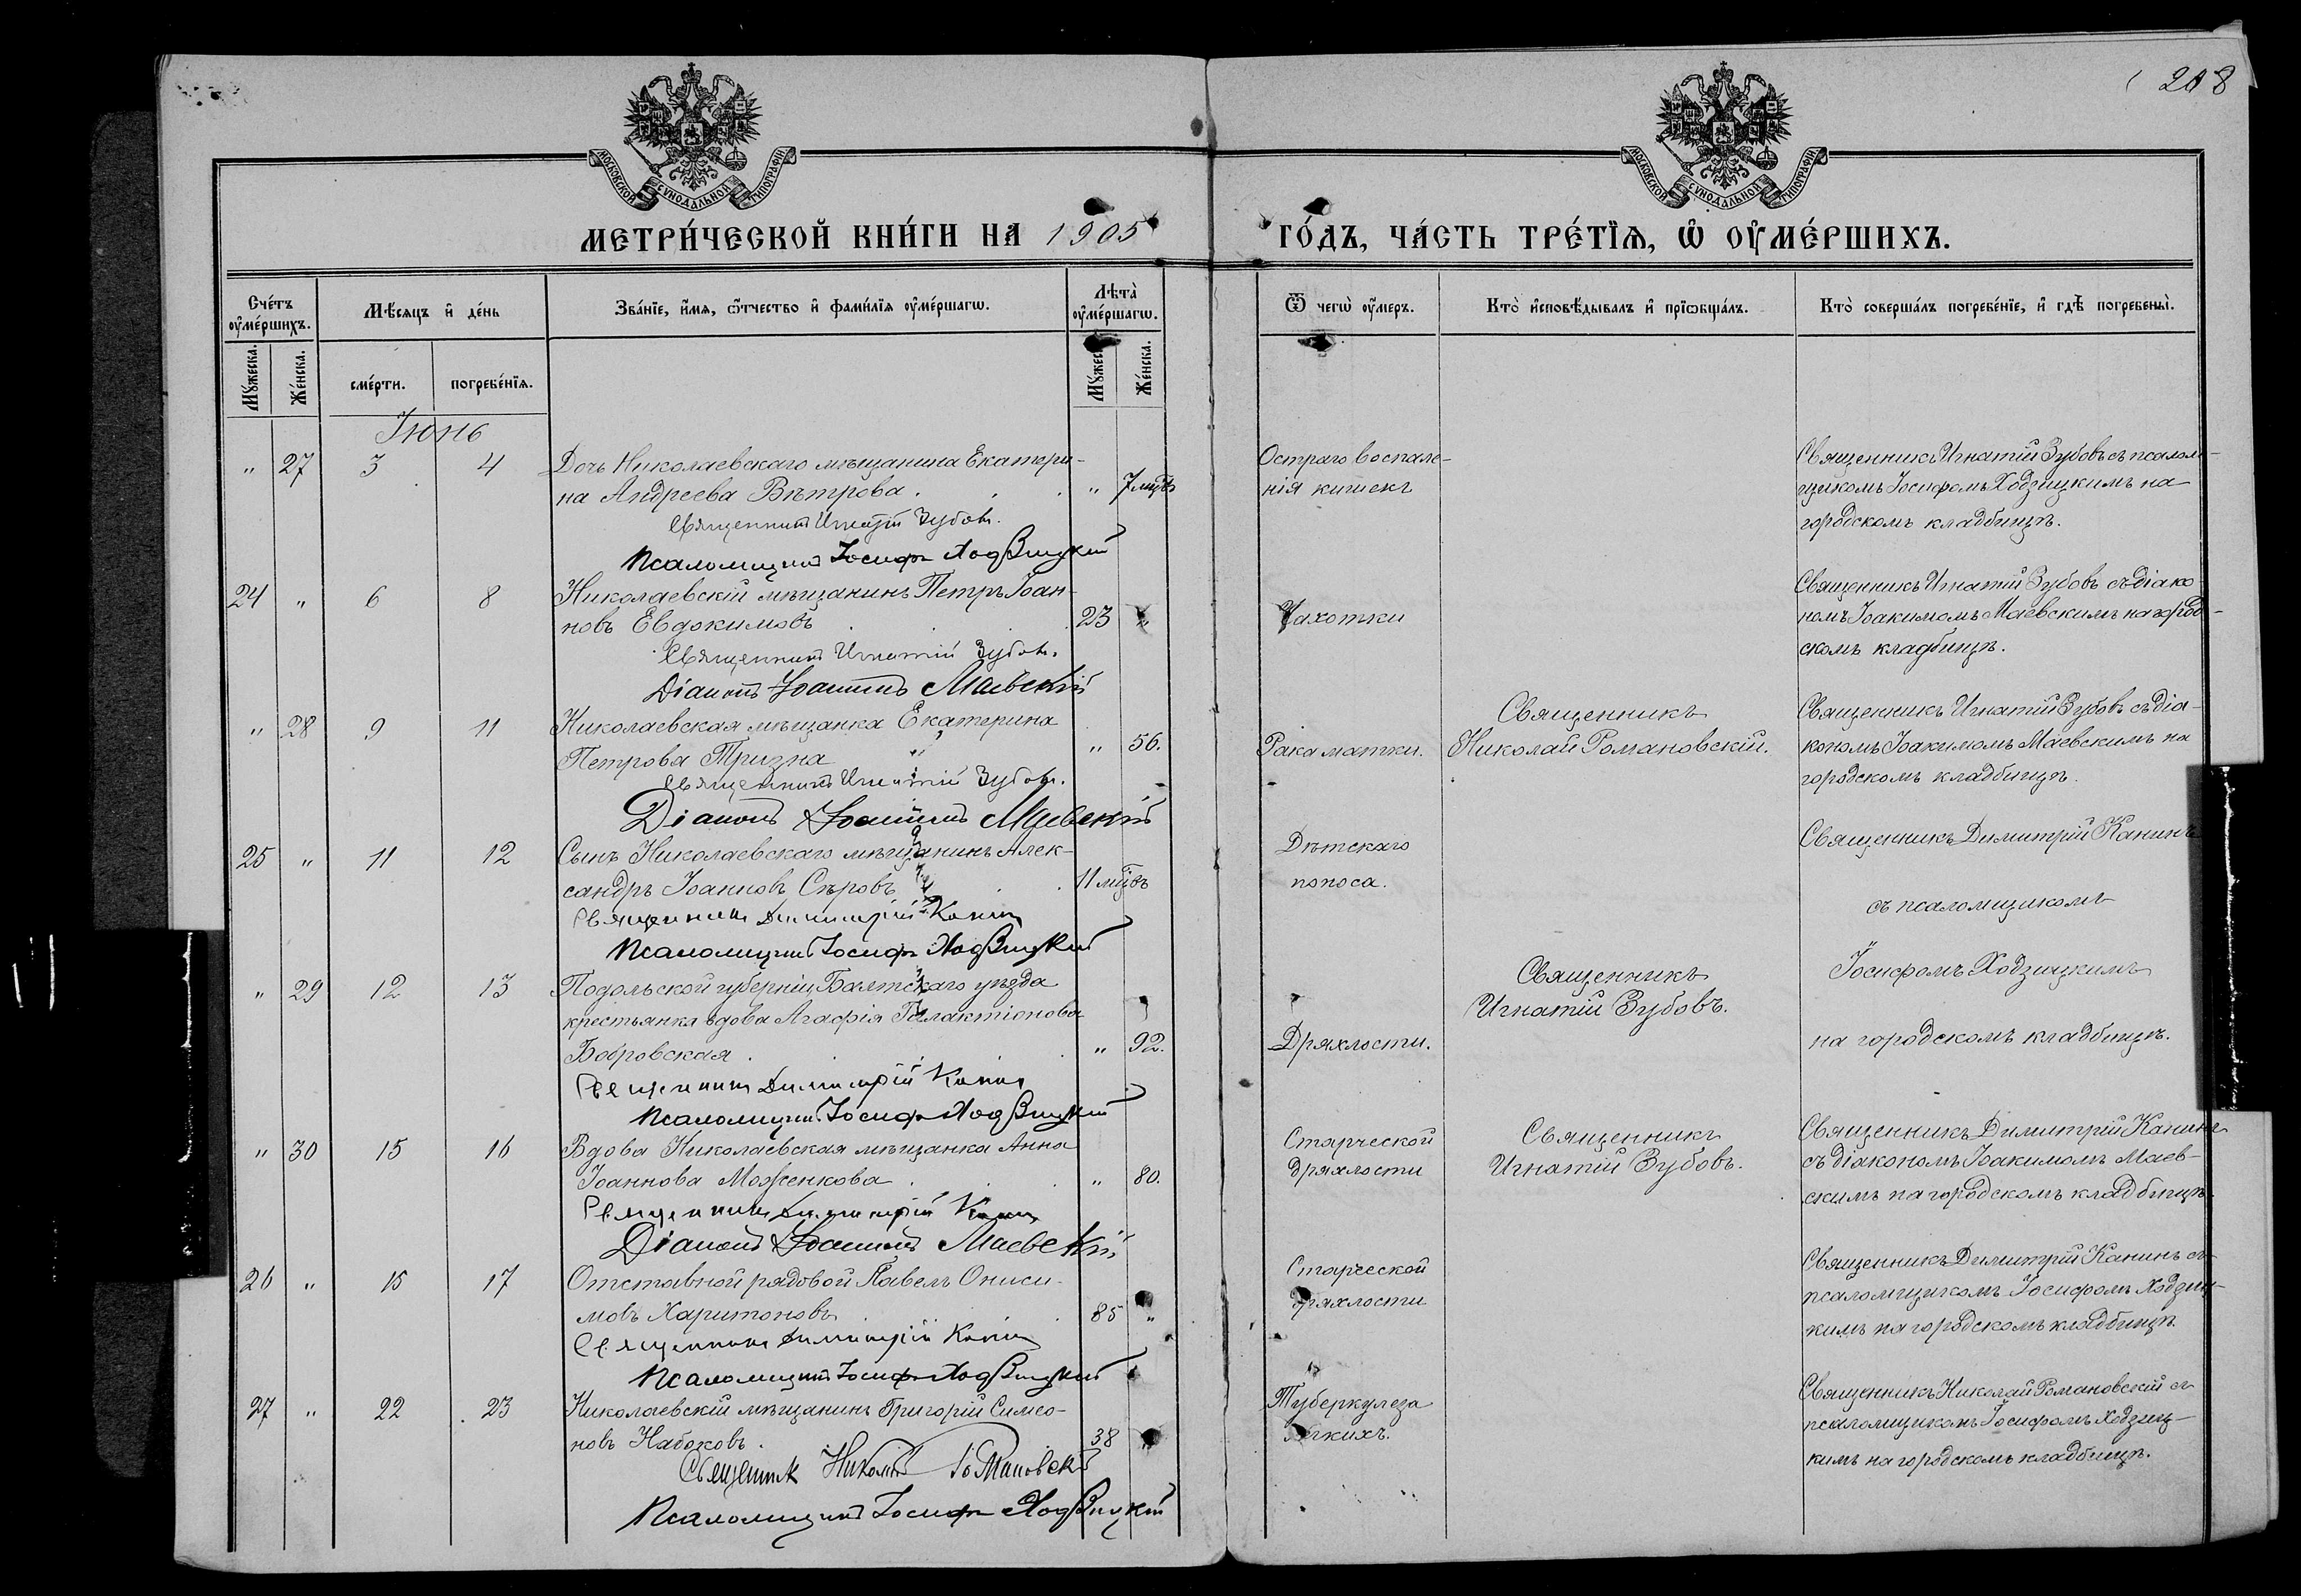 208
МОСКОВСКОЙ СУНОДАЛЬНОЙ ТИПОГРАФІИ
МОСКОВСКОЙ СУНОДАЛЬНОЙ ТИПОГРАФІИ
МЕТРИ́ЧЕСКОЙ КНИ́ГИ НА 1905 ГО́ДЪ, ЧА́СТЬ ТРЕ́ТЇѦ, Ѡ҆ ОУ҆МЕ́РШИХЪ.
Сче́тъ оу҆ме́ршихъ.
Мѣ́сѧцъ и҆ де́нь
Зва́нїе, и҆́мѧ, ѻ҆́тчество и҆ фами́лїѧ оу҆ме́ршагѡ.
Лѣта̀ оу҆ме́ршагѡ.
Ѿ чегѡ̀ оу҆́меръ.
Кто̀ и҆сповѣ́дывалъ и҆ прїѡбща́лъ.
Кто̀ соверша́лъ погребе́нїе, и҆ гдѣ̀ погребены̀.
Мꙋ́жеска. Же́нска. сме́рти. погребе́нїѧ. Мꙋ́жеска. Же́нска.
Іюнь
" 27 3 4 Дочь Николаевскаго мѣщанина Екатери-
на Андреева Вѣтрова. " 7 мцѣв
Священникъ Игнатій Зубовъ.
Псаломщикъ Іосифъ Ходзицкій
Остраго воспале-
нія кишекъ
Священникъ Игнатій Зубовъ съ псалом-
щикомъ Іосифомъ Ходзицкимъ на
городскомъ кладбищѣ.
24 " 6 8 Николаевскій мѣщанинъ Петръ Іоан-
новъ Евдокимовъ 23 "
Священникъ Игнатій Зубовъ.
Діаконъ Іоакимъ Маевскій
Чахотки
Священникъ Игнатій Зубовъ съ діако-
номъ Іоакимомъ Маевскимъ на город-
скомъ кладбищѣ.
" 28 9 11 Николаевская мѣщанка Екатерина
Петрова Тризна " 56.
Священникъ Игнатій Зубовъ.
Діаконъ Іоакимъ Маевскій
Рака матки.
Священникъ
Николай Романовскій.
Священникъ Игнатій Зубовъ съ діа-
кономъ Іоакимомъ Маевскимъ на
городскомъ кладбищѣ.
25 " 11 12 Сынъ Николаевскаго мѣщанинъ Алек-
сандръ Іоанновъ Сѣровъ 11 мцѣв
Священникъ Димитрій Канинъ
Псаломщикъ Іосифъ Ходзицкій
Дѣтскаго
поноса.
Священникъ Димитрій Канинъ
съ псаломщикомъ
" 29 12 13 Подольской губерніи Балтскаго уѣзда
крестьянка вдова Агафія Галактіонова
Бобровская. " 92.
Священникъ Димитрій Канинъ
Псаломщикъ Іосифъ Ходзицкій
Дряхлости.
Священникъ
Игнатій Зубовъ.
Іосифомъ Ходзицкимъ
на городскомъ кладбищѣ.
" 30 15 16 Вдова Николаевская мѣщанка Анна
Іоаннова Моженкова. " 80.
Священникъ Димитрій Канинъ
Діаконъ Іоакимъ Маевскій
Старческой
дряхлости
Священникъ
Игнатій Зубовъ.
Священникъ Димитрій Канинъ
съ діакономъ Іоакимомъ Маев-
скимъ на городскомъ кладбищѣ.
26 " 15 17 Отставной рядовой Павелъ Ониси-
мовъ Харитоновъ 85 "
Священникъ Димитрій Канинъ
Псаломщикъ Іосифъ Ходзицкій
Старческой
дряхлости
Священникъ Димитрій Канинъ съ
псаломщикомъ Іосифомъ Ходзиц-
кимъ на городскомъ кладбищѣ.
27 " 22 23 Николаевскій мѣщанинъ Григорій Симео-
новъ Набоковъ. 38 "
Священник Николай Романовскій
Псаломщикъ Іосифъ Ходзицкій
Туберкулеза
легкихъ.
Священникъ Николай Романовскій съ
псаломщикомъ Іосифомъ Ходзиц-
кимъ на городскомъ кладбищѣ.